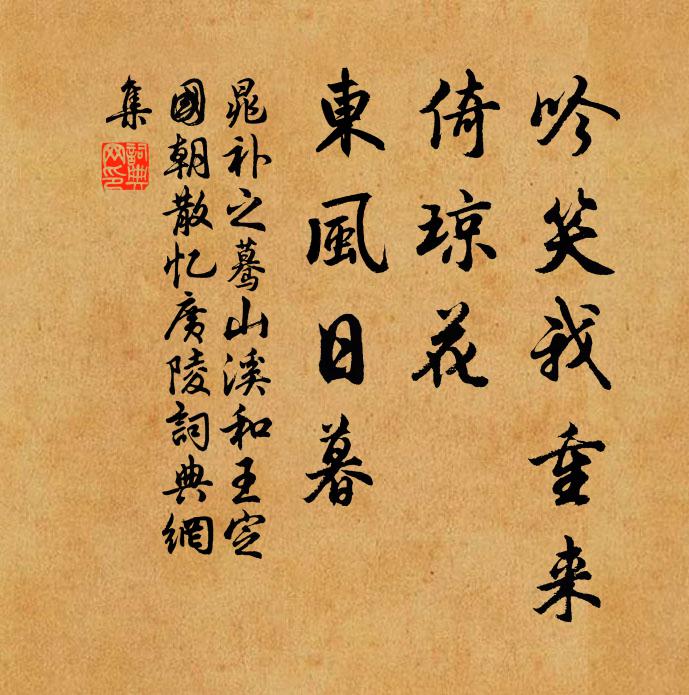 吟笑我重来
倚琼花
東風日暮
晁补之蓦山溪和王定
國朝散忆廣陵詞典網
集
詞典網印